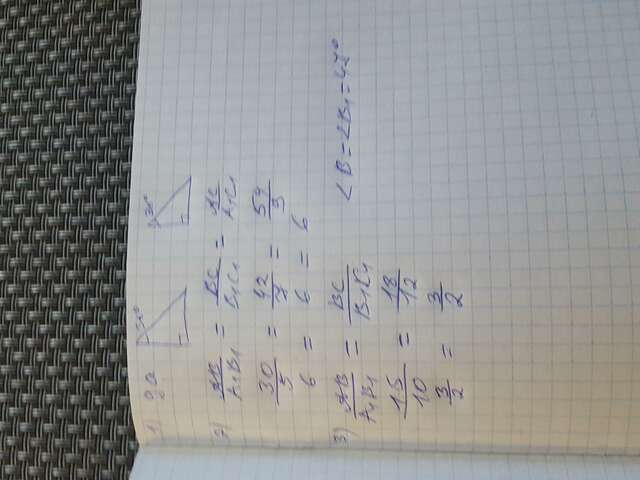 1) да
2) AB/A₁B₁ = BC/B₁C₁ = AC/A₁C₁
30/5 = 42/7 = 54/9
6 = 6 = 6
3) AB/A₁B₁ = BC/B₁C₁ ∠B=∠B₁=47°
15/10 = 18/12
3/2 = 3/2